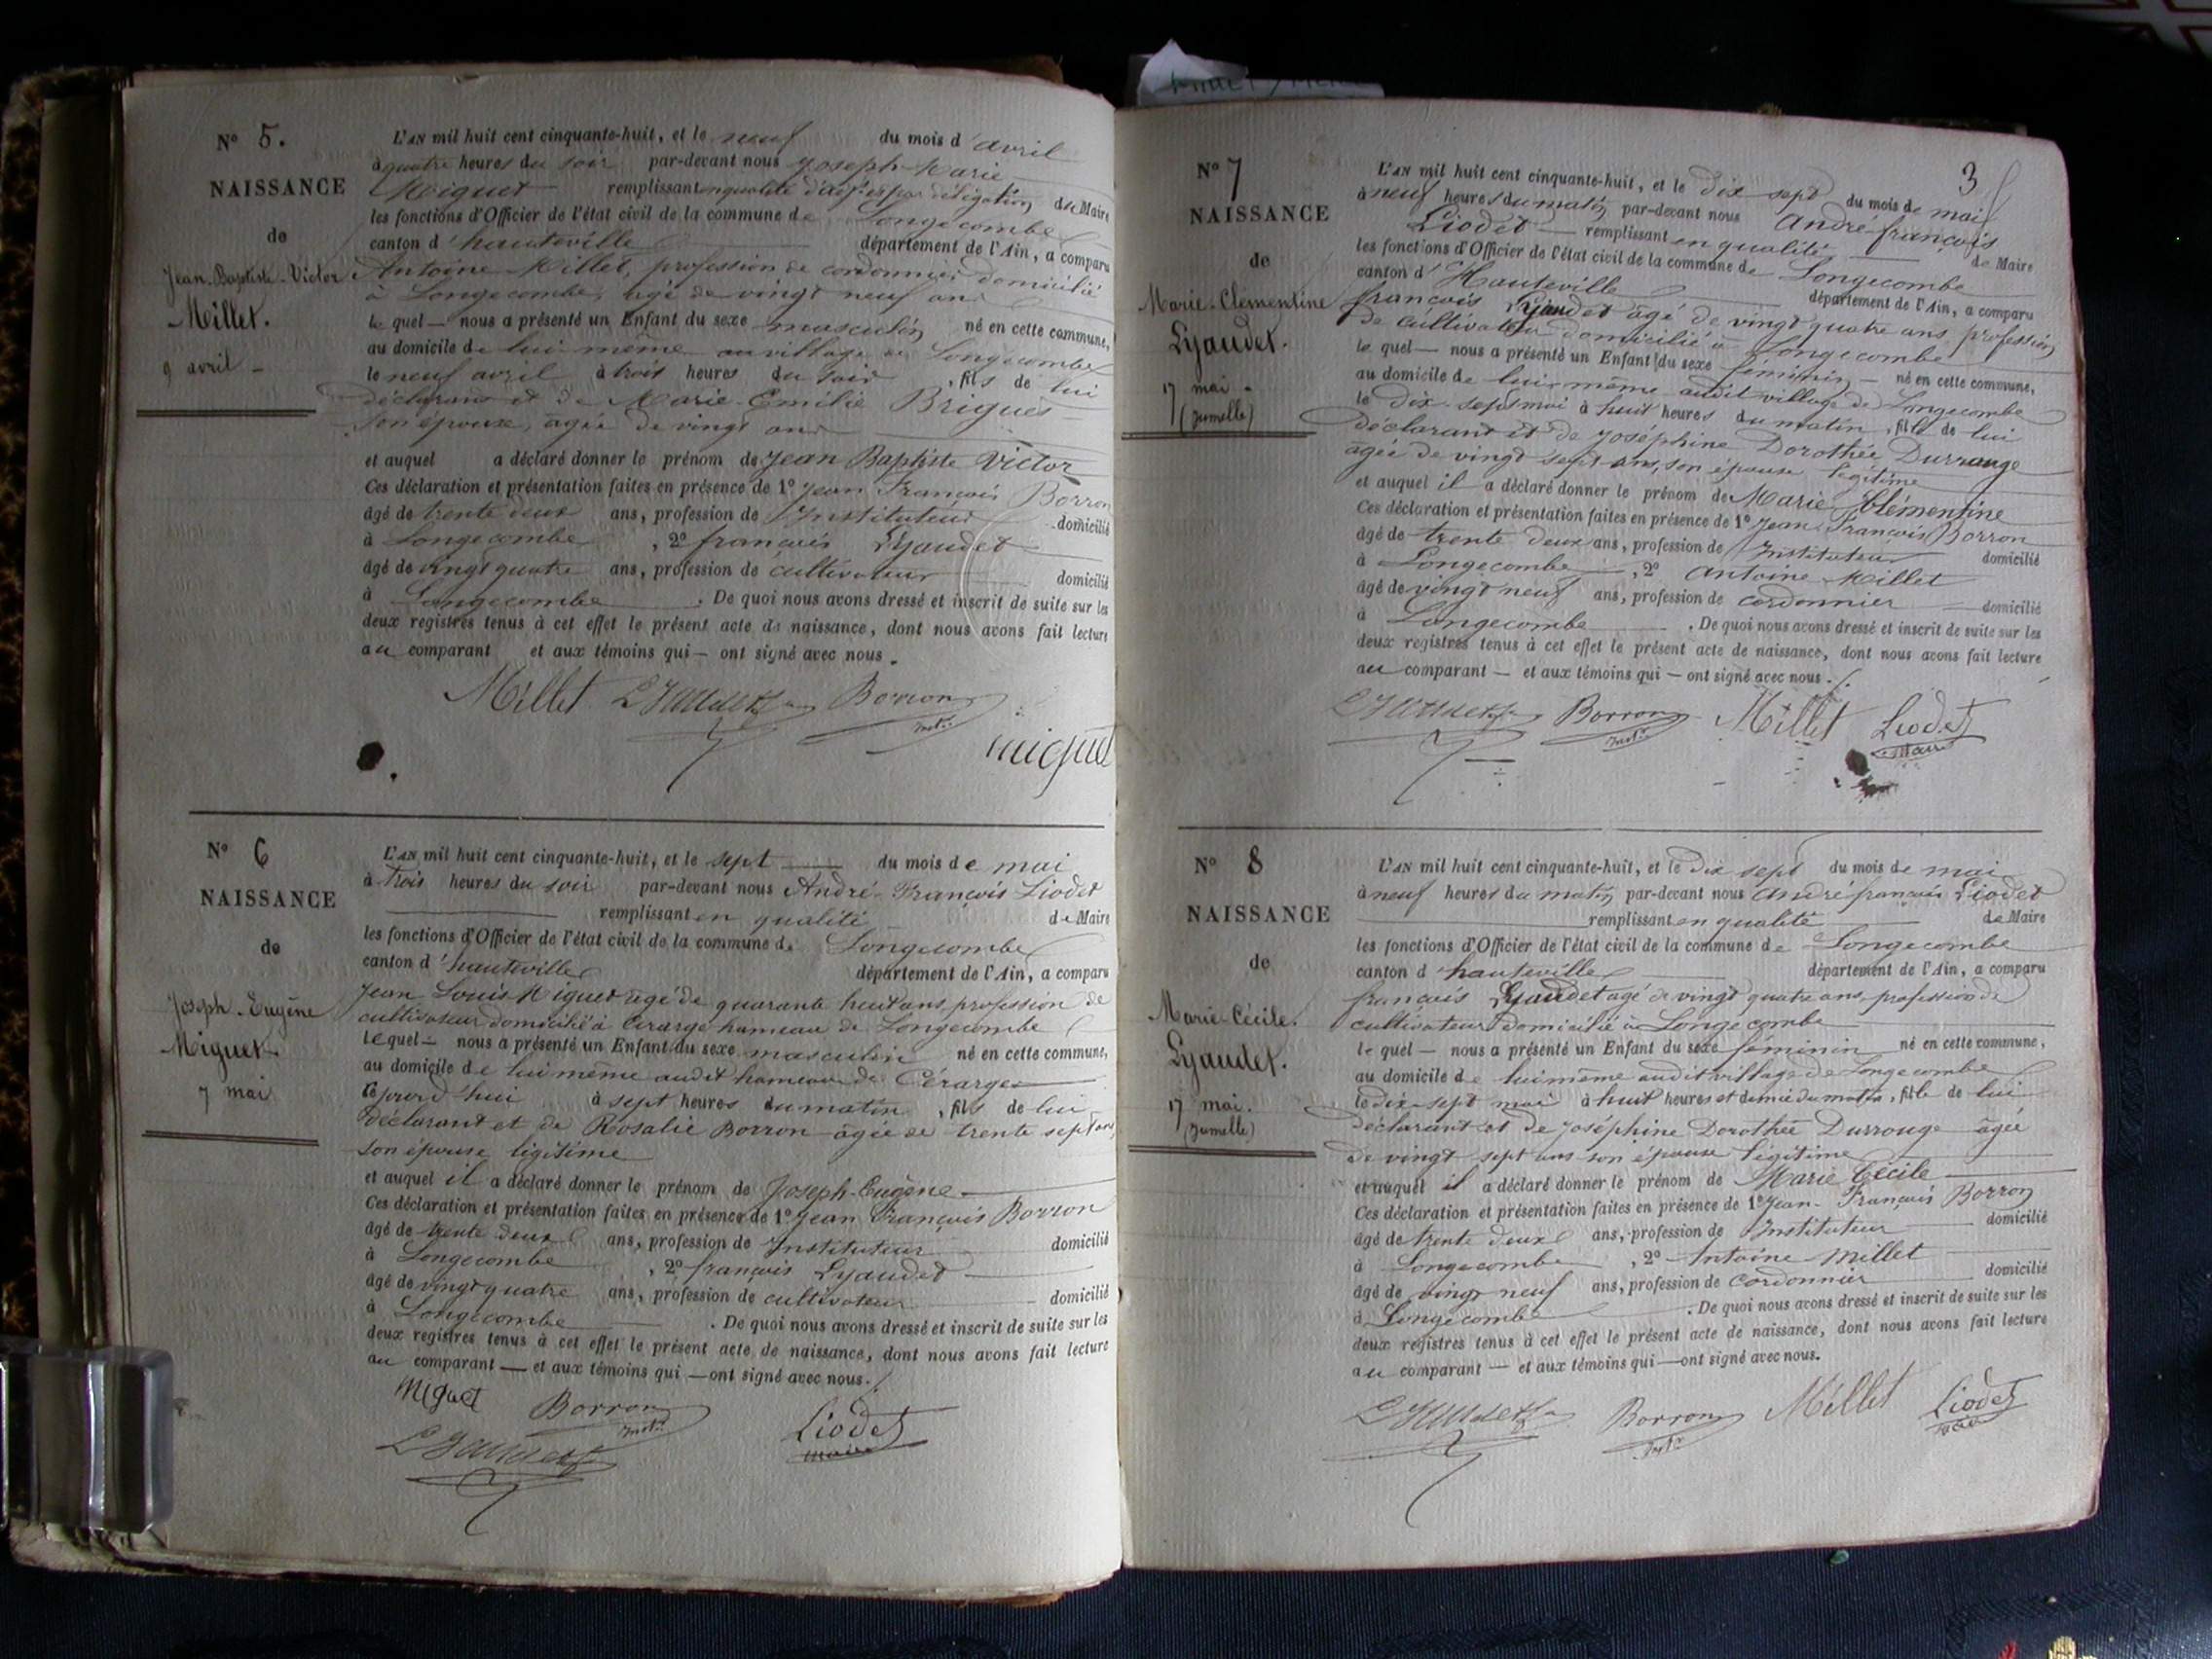 N° 5.
NAISSANCE
de
Jean-Baptiste-Victor
Millet.
9 avril
L'AN mil huit cent cinquante-huit, et le neuf du mois d'avril
à quatre heures du soir par-devant nous Joseph-Marie
Miguet remplissant en qualité d'adjoint par délégation de Maire
les fonctions d'Officier de l'état civil de la commune de Longecombe
canton d'hauteville département de l'Ain, a comparu
Antoine Millet, profession de cordonnier domicilié
à Longecombe, agé de vingt neuf ans
le quel — nous a présenté un Enfant du sexe masculin né en cette commune,
au domicile de lui même au village de Longecombe
le neuf avril à trois heures du soir, fils de lui
déclarant et de Marie-Emilie Brigues
son épouse, agée de vingt ans
et auquel a déclaré donner le prénom de Jean Baptiste Victor
Ces déclaration et présentation faites en présence de 1° Jean François Borron
âgé de trente deux ans, profession de Instituteur domicilié
à Longecombe, 2° françois Lyaudet
âgé de vingt quatre ans, profession de cultivateur domicilié
à Longecombe. De quoi nous avons dressé et inscrit de suite sur les
deux registres tenus à cet effet le présent acte de naissance, dont nous avons fait lecture
au comparant et aux témoins qui — ont signé avec nous.
Millet Lyaudet Borron
inst.
miguet
N° 6
NAISSANCE
de
Joseph-Eugène
Miguet.
7 mai
L'AN mil huit cent cinquante-huit, et le sept du mois de mai
à trois heures du soir par-devant nous André-François Liodet
remplissant en qualité de Maire
les fonctions d'Officier de l'état civil de la commune de Longecombe
canton d'hauteville département de l'Ain, a comparu
Jean Louis Miguet agé de quarante huit ans, profession de
cultivateur domicilié à Cérarge hameau de Longecombe
le quel — nous a présenté un Enfant du sexe masculin né en cette commune,
au domicile de lui même audit hameau de Cérarges
le jourd'hui à sept heures du matin, fils de lui
déclarant et de Rosalie Borron agée de trente sept ans
son épouse légitime
et auquel il a déclaré donner le prénom de Joseph-Eugène
Ces déclaration et présentation faites en présence de 1° Jean François Borron
âgé de trente deux ans, profession de Instituteur domicilié
à Longecombe, 2° françois Lyaudet
âgé de vingt quatre ans, profession de cultivateur domicilié
à Longecombe. De quoi nous avons dressé et inscrit de suite sur les
deux registres tenus à cet effet le présent acte de naissance, dont nous avons fait lecture
au comparant — et aux témoins qui — ont signé avec nous.
Miguet Borron Liodet
inst. maire
Lyaudet
3
N° 7
NAISSANCE
de
Marie-Clémentine
Lyaudet.
17 mai
(Jumelle)
L'AN mil huit cent cinquante-huit, et le dix sept du mois de mai
à neuf heures du matin par-devant nous André françois
Liodet — remplissant en qualité de Maire
les fonctions d'Officier de l'état civil de la commune de Longecombe
canton d'Hauteville département de l'Ain, a comparu
françois Lyaudet agé de vingt quatre ans profession
de cultivateur domicilié à Longecombe
le quel — nous a présenté un Enfant du sexe féminin — né en cette commune,
au domicile de lui même audit village de Longecombe
le dix-sept mai à huit heures du matin, fille de lui
déclarant et de Joséphine Dorothée Durrouge
agée de vingt sept ans, son épouse légitime
et auquel il a déclaré donner le prénom de Marie Clémentine
Ces déclaration et présentation faites en présence de 1° Jean François Borron
âgé de trente deux ans, profession de Instituteur domicilié
à Longecombe, 2° Antoine Millet
âgé de vingt neuf ans, profession de cordonnier domicilié
à Longecombe. De quoi nous avons dressé et inscrit de suite sur les
deux registres tenus à cet effet le présent acte de naissance, dont nous avons fait lecture
au comparant — et aux témoins qui — ont signé avec nous.
Lyaudet Borron Millet Liodet
inst. Maire
N° 8
NAISSANCE
de
Marie-Cécile
Lyaudet.
17 mai.
(Jumelle)
L'AN mil huit cent cinquante-huit, et le dix sept du mois de mai
à neuf heures du matin par-devant nous André françois Liodet
remplissant en qualité de Maire
les fonctions d'Officier de l'état civil de la commune de Longecombe
canton d'hauteville département de l'Ain, a comparu
françois Lyaudet agé de vingt quatre ans, profession de
cultivateur domicilié à Longecombe
le quel — nous a présenté un Enfant du sexe féminin né en cette commune,
au domicile de lui même audit village de Longecombe
le dix-sept mai à huit heures et demie du matin, fille de lui
déclarant et de Joséphine Dorothée Durrouge agée
de vingt sept ans son épouse légitime
et auquel il a déclaré donner le prénom de Marie Cécile
Ces déclaration et présentation faites en présence de 1° Jean-François Borron
âgé de trente deux ans, profession de Instituteur domicilié
à Longecombe, 2° Antoine Millet
âgé de vingt neuf ans, profession de cordonnier domicilié
à Longecombe. De quoi nous avons dressé et inscrit de suite sur les
deux registres tenus à cet effet le présent acte de naissance, dont nous avons fait lecture
au comparant — et aux témoins qui — ont signé avec nous.
Lyaudet Borron Millet Liodet
inst. maire